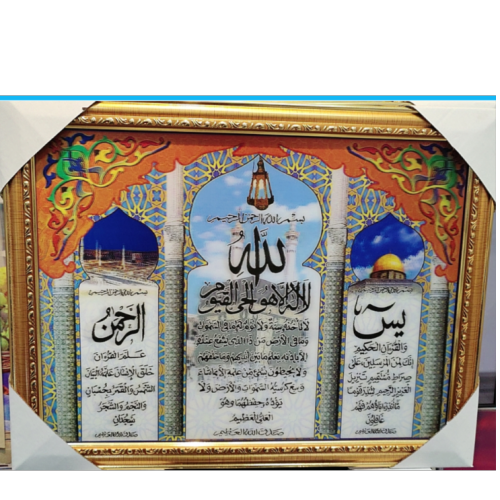 بسم الله الرحمن الرحيم
الله
لا اله الا هو الحي القيوم
لا تأخذه سنة ولا نوم له ما في السموات
وما في الارض من ذا الذي يشفع عنده
الا باذنه يعلم ما بين ايديهم وما خلفهم
ولا يحيطون بشيء من علمه الا بما شاء
وسع كرسيه السموات والارض ولا
يؤده حفظهما وهو
العلي العظيم
بسم الله الرحمن الرحيم
يس
والقرآن الحكيم
انك لمن المرسلين على
صراط مستقيم تنزيل
العزيز الرحيم لتنذر قوما
ما انذر آباؤهم فهم
غافلون
بسم الله الرحمن الرحيم
الرحمن
علم القرآن
خلق الانسان علمه البيان
الشمس والقمر بحسبان
والنجم والشجر
يسجدان